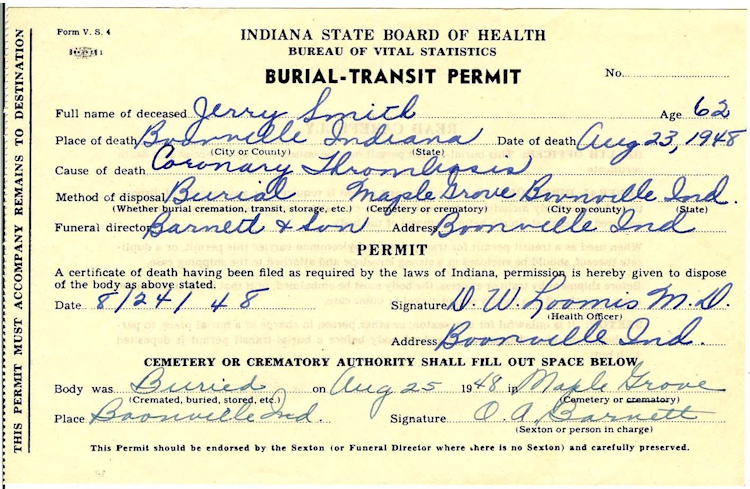 Form V. S. 4
INDIANA STATE BOARD OF HEALTH
BUREAU OF VITAL STATISTICS
BURIAL-TRANSIT PERMIT
No.
Full name of deceased Jerry Smith Age 62
Place of death Boonville Indiana Date of death Aug 23, 1948
(City or County) (State)
Cause of death Coronary Thrombosis
Method of disposal Burial Maple Grove Boonville Ind.
(Whether burial cremation, transit, storage, etc.) (Cemetery or crematory) (City or county) (State)
Funeral director Barnett & Son Address Boonville Ind
PERMIT
A certificate of death having been filed as required by the laws of Indiana, permission is hereby given to dispose
of the body as above stated.
Date 8/24/48 Signature D. W. Loomis M.D.
(Health Officer)
Address Boonville Ind.
CEMETERY OR CREMATORY AUTHORITY SHALL FILL OUT SPACE BELOW
Body was Buried on Aug 25 1948 in Maple Grove
(Cremated, buried, stored, etc.) (Cemetery or crematory)
Place Boonville Ind. Signature O. A. Barnett
(Sexton or person in charge)
This Permit should be endorsed by the Sexton (or Funeral Director where there is no Sexton) and carefully preserved.
THIS PERMIT MUST ACCOMPANY REMAINS TO DESTINATION